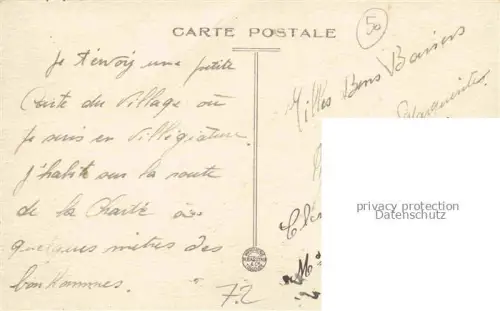 CARTE POSTALE
50
Je t'envoie une petite
Carte du Village où
Je suis en Villégiature
J'habite sur la route
de la Charité à
quelques mètres des
bonhommes.
Milles Bons Baisers
privacy protection
Datenschutz
72